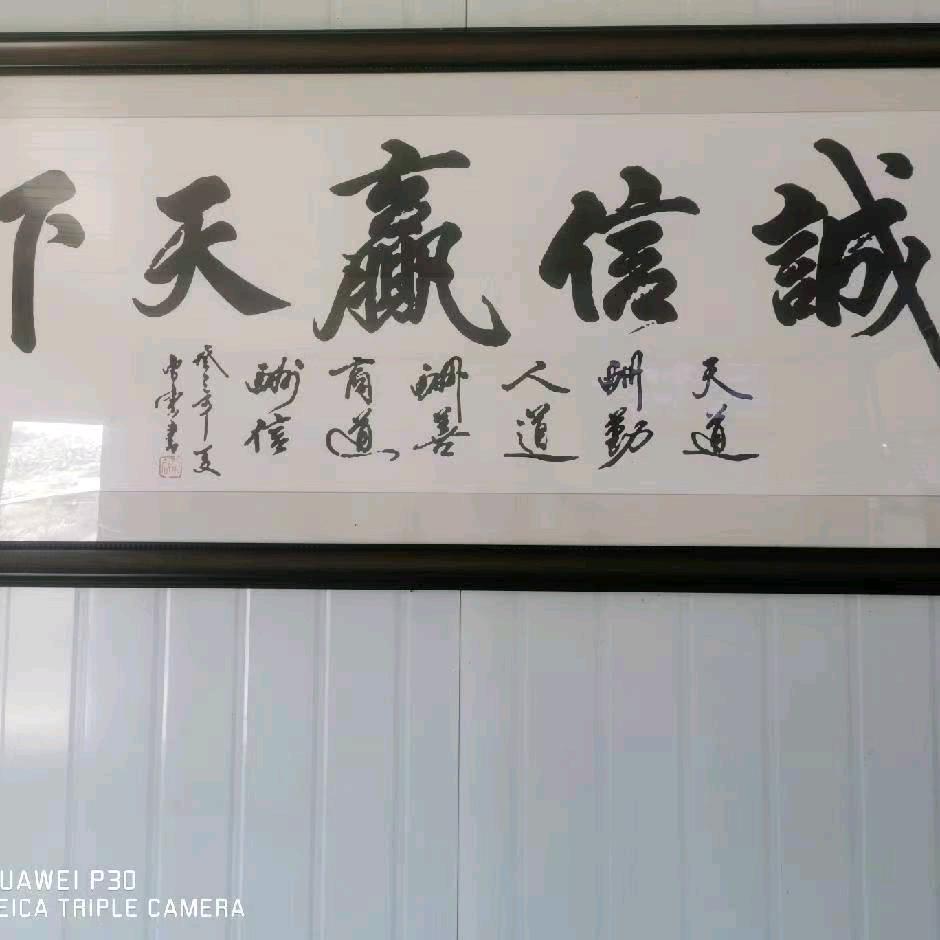 誠信贏天下
天道
酬勤
人道
酬善
商道
酬信
癸巳年夏
UAWEI P30
EICA TRIPLE CAMERA